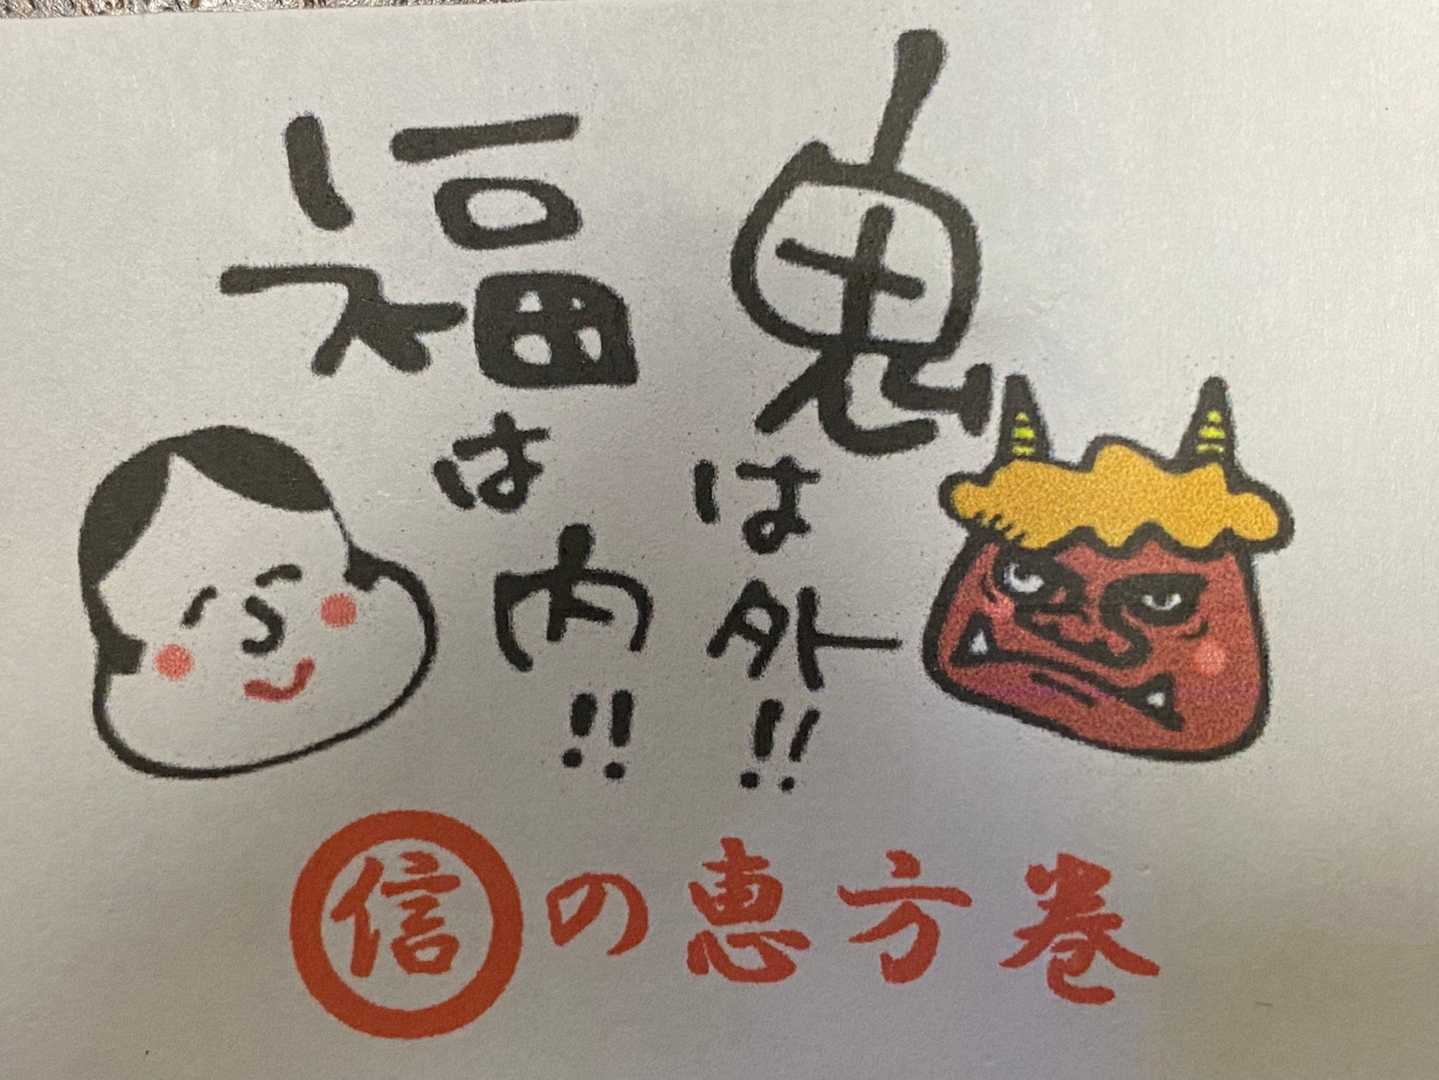 鬼は外!!
福は内!!
信の恵方巻